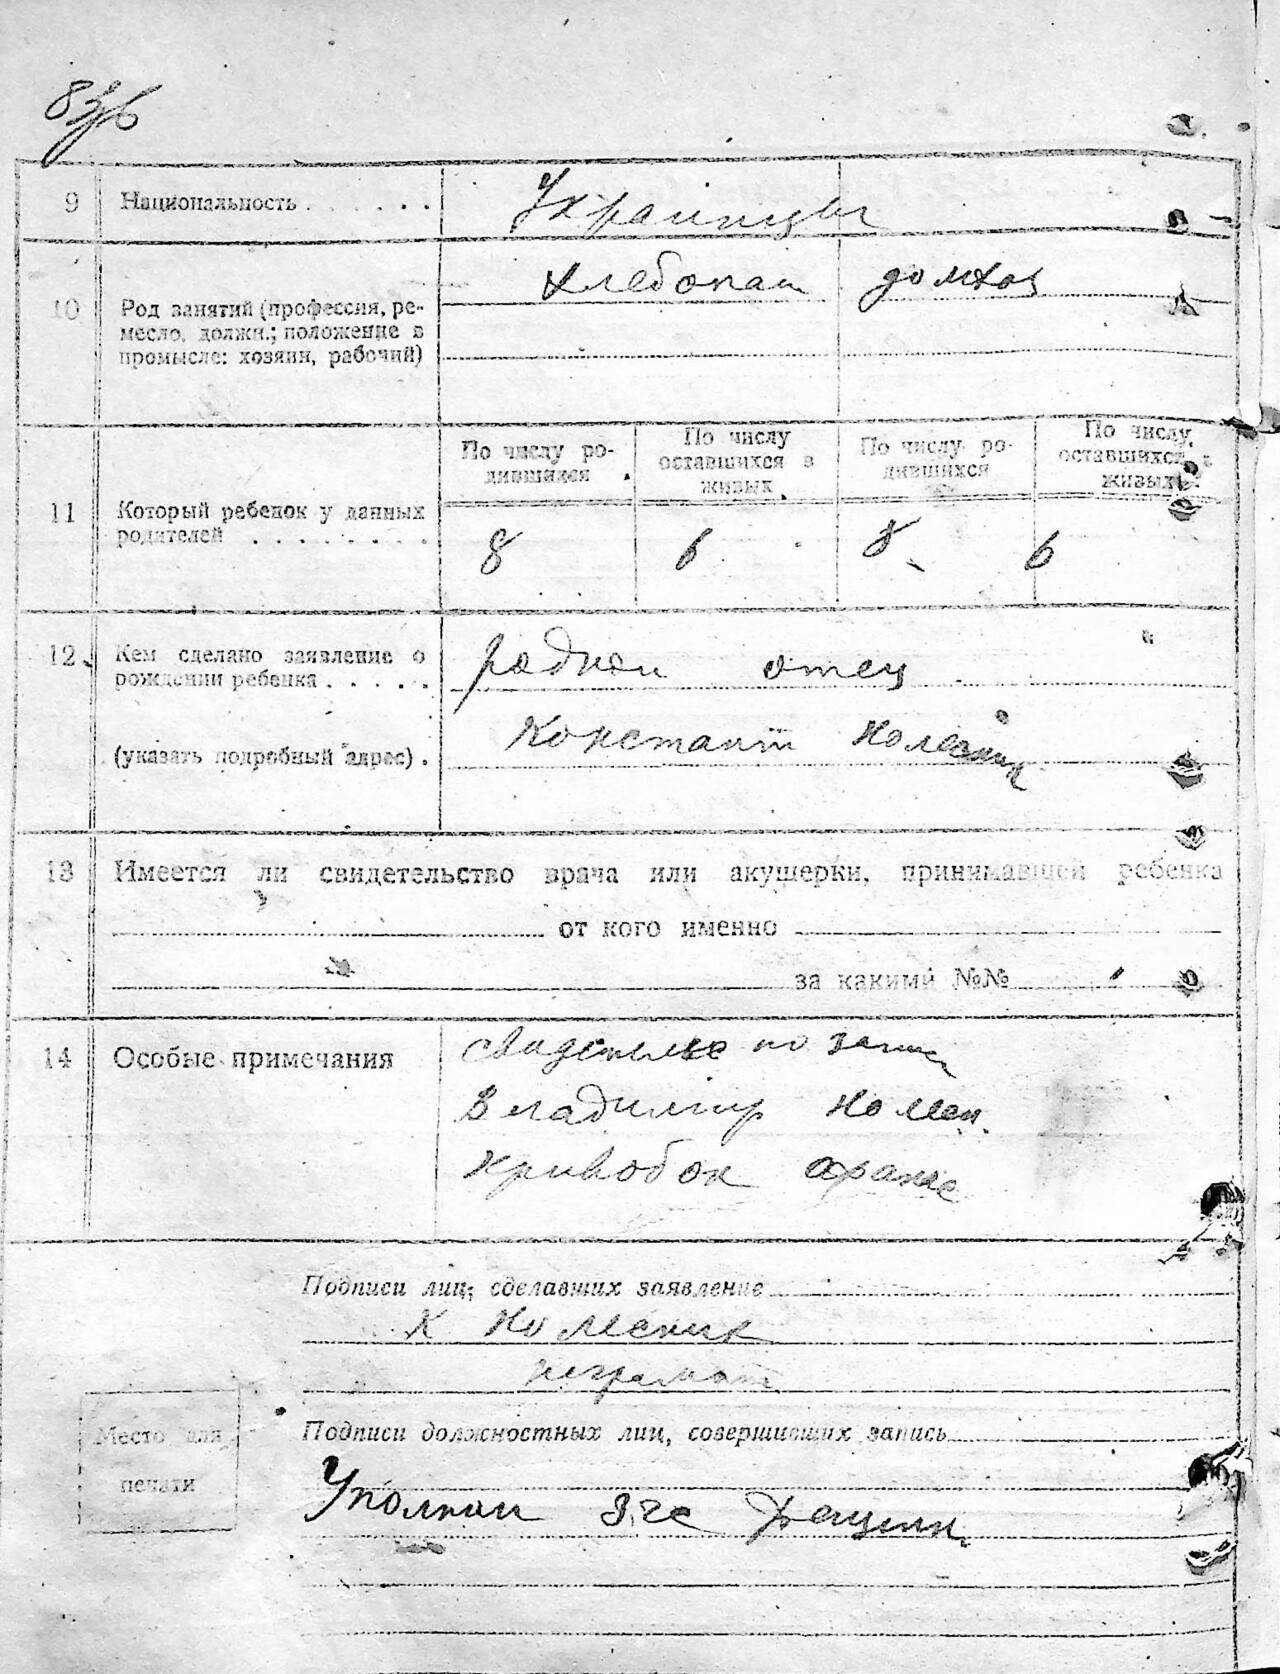 9 Национальность . . . . . . Украинцы
10 Род занятий (профессия, ре-
месло, должн.; положение в
промысле: хозяин, рабочий)
хлебопаш домхоз
11 Который ребенок у данных
родителей . . . . . . . .
По числу ро-
дившихся
По числу
оставшихся в
живых
По числу ро-
дившихся
По числу
оставшихся в
живых
8 6 8 6
12 Кем сделано заявление о
рождении ребенка . . . . .
(указать подробный адрес) .
родной отец
Констант Колесник
13 Имеется ли свидетельство врача или акушерки, принимавшей ребенка
от кого именно
за какими №№
14 Особые примечания
по
Владимир
Кривобок
Подписи лиц, сделавших заявление
К Колесник
неграмот
Подписи должностных лиц, совершивших запись
Место для
печати
Уполном